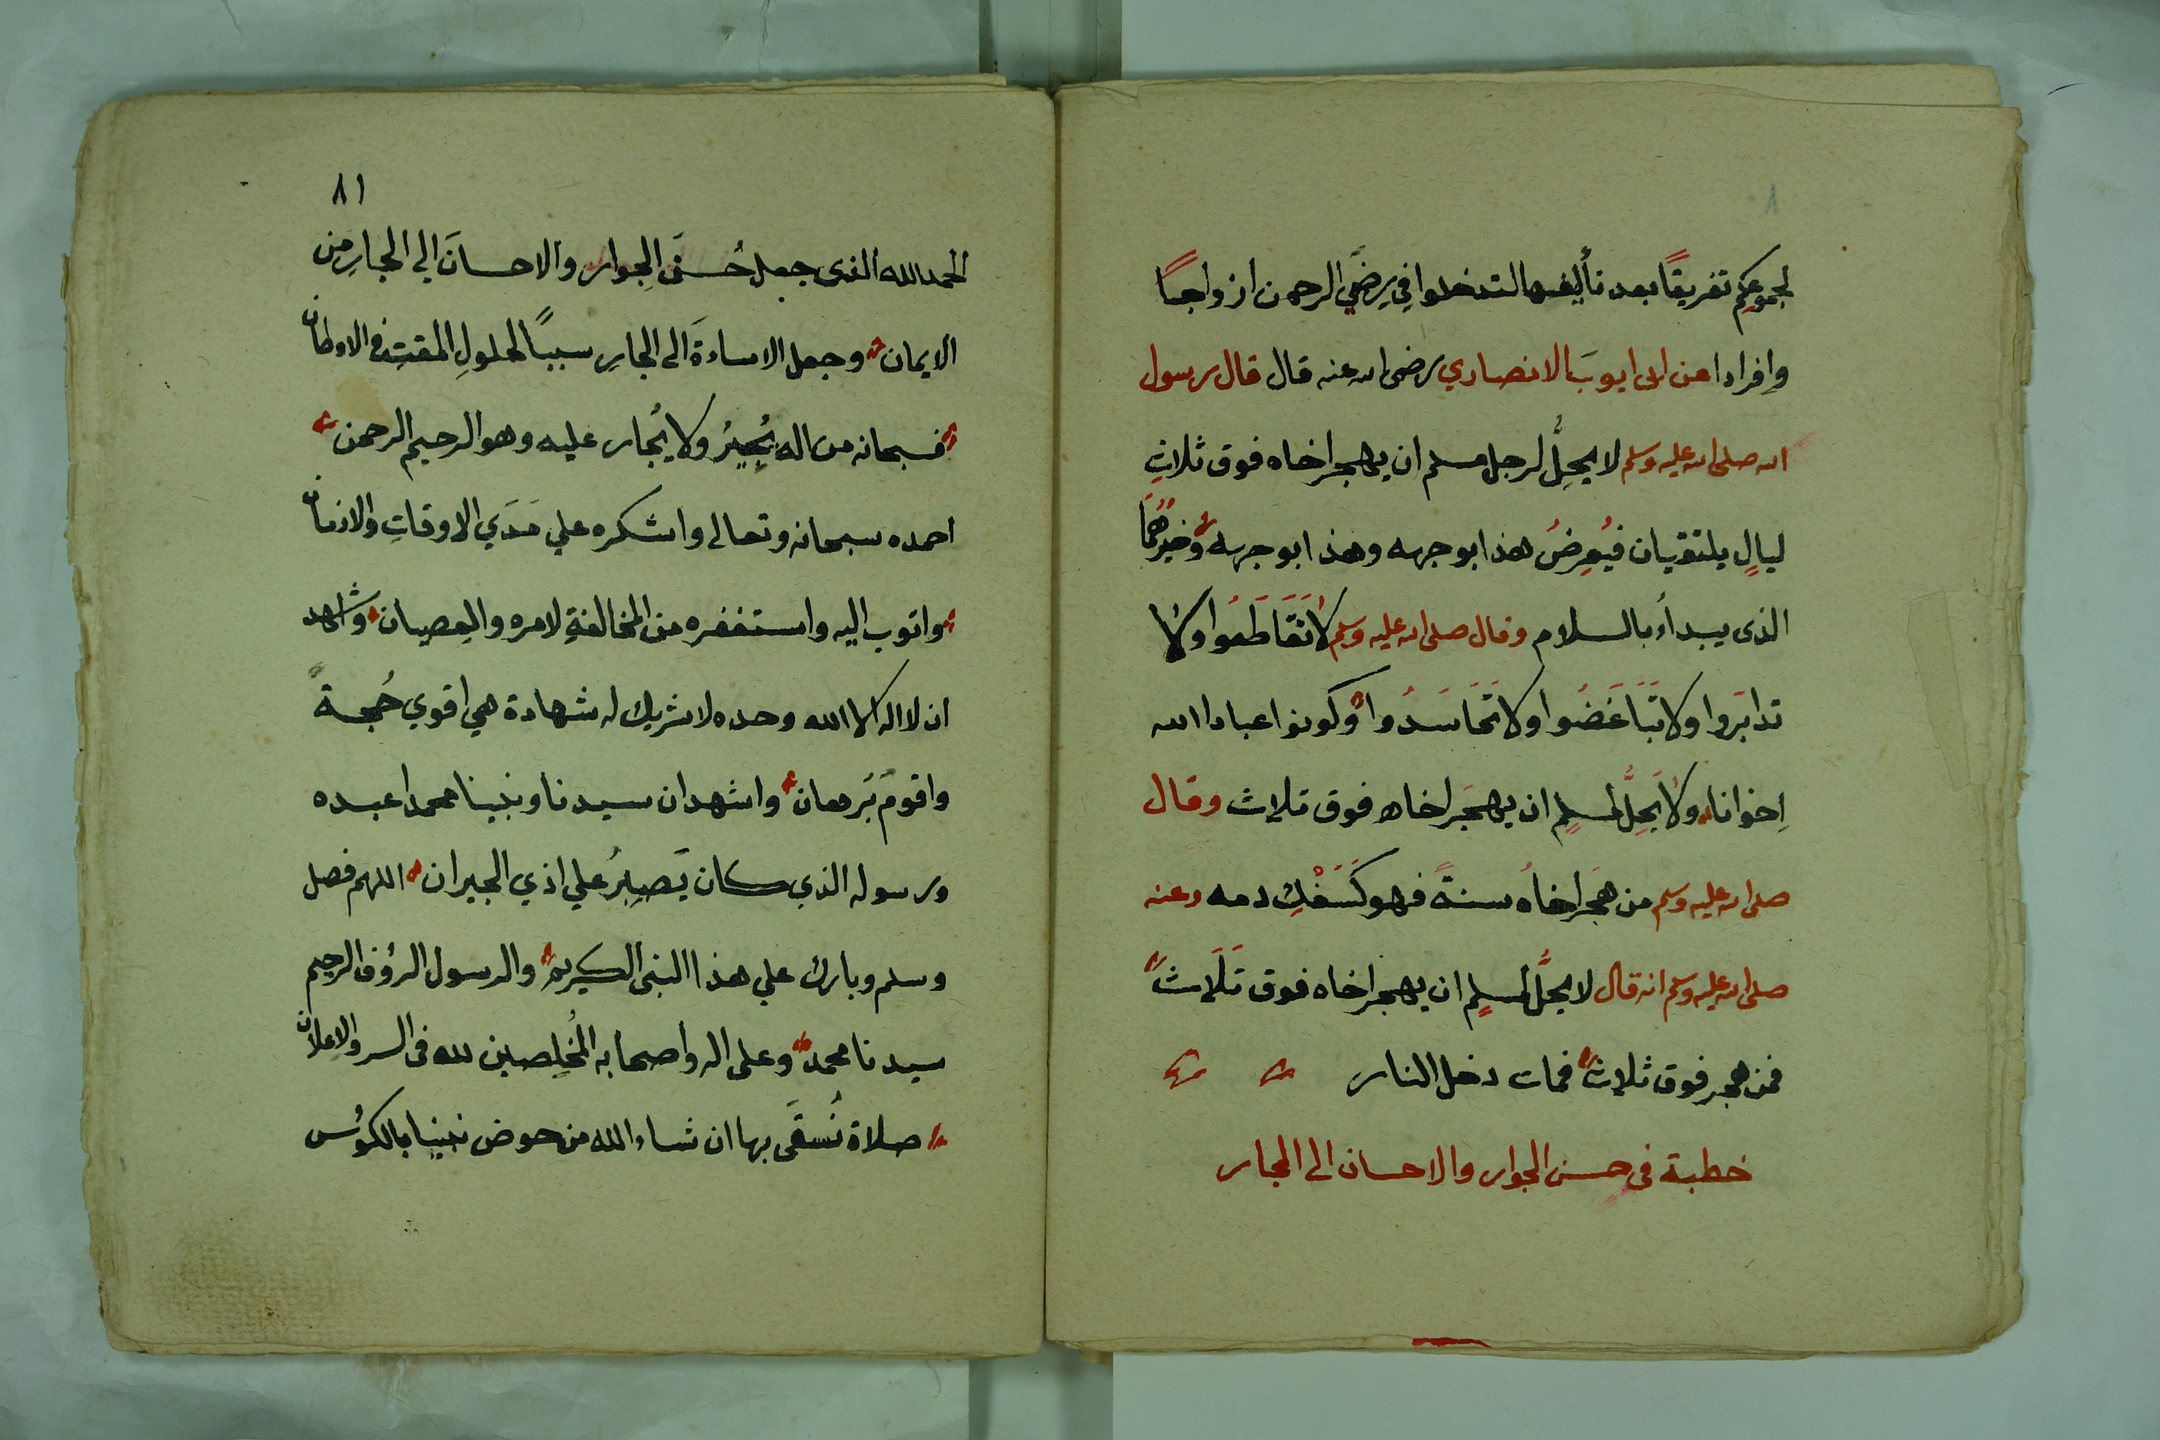 ٨٠
لجموعكم تفريقًا بعد تأليفها لتدخلوا في رِضَي الرحمن ازواجًا
وافِرادا عن ابى ايوبَ الانصاري رضى الله عنه قال قال رسول
الله صلى الله عليه وسلم لا يحِلُّ لرجل مسلم ان يهجر اخاه فوق ثلاثِ
ليالٍ يلتقيان فيُعرِضُ هذا بوجهه وهذا بوجهه وخَيرُهُمَا
الذى يبدأ بالسلام وقال صلى الله عليه وسلم لا تَقَاطَعُوا ولا
تدابَروا ولا تَبَاغَضُوا ولا تَحَاسَدُوا وكونوا عبادا لله
اِخوانا ولا يَحِلُّ لمسلمٍ ان يهجَر اخاه فوق ثلاث وقال
صلى الله عليه وسلم من هَجَر اخاه سنةً فهو كَسَفْكِ دمه وعنه
صلى الله عليه وسلم انه قال لا يحلُّ لمسلمٍ ان يهجر اخاه فوق ثَلَاث
فمن هجر فوق ثلاث فمات دخل النار
خطبة فى حسن الجوار والاحسان الى الجار
٨١
الحمد لله الذى جعل حُسنَ الجِوار والاحسانَ الي الجارِ مِن
الايمان وجعل الاساءةَ الى الجارِ سببًا لحلولِ المقتِ فى الاوطان
فسبحانه من اله يُجِيرُ ولا يُجار عليه وهو الرحيم الرحمن
احمده سبحانه وتعالى واشكره علي مَدَي الاوقاتِ والازمان
واتوب اليه واستغفره من المخالفةِ لامره والعِصيان واشهد
ان لا اله الا الله وحده لا شريك له شهادة هي اقوي حُجةً
واقومَ بَرهان واشهد ان سيدنا ونبينا محمدا عبده
ورسوله الذي كان يَصبِرُ علي اذي الجيران اللهم فصل
وسلم وبارك علي هذا النبى الكريم والرسول الرؤف الرحيم
سيدنا محمد وعلى اله واصحابه المُخلِصين لله فى السر والاعلان
صلاة نُسقَى بها ان شاء الله من حوض نبينا بالكؤس